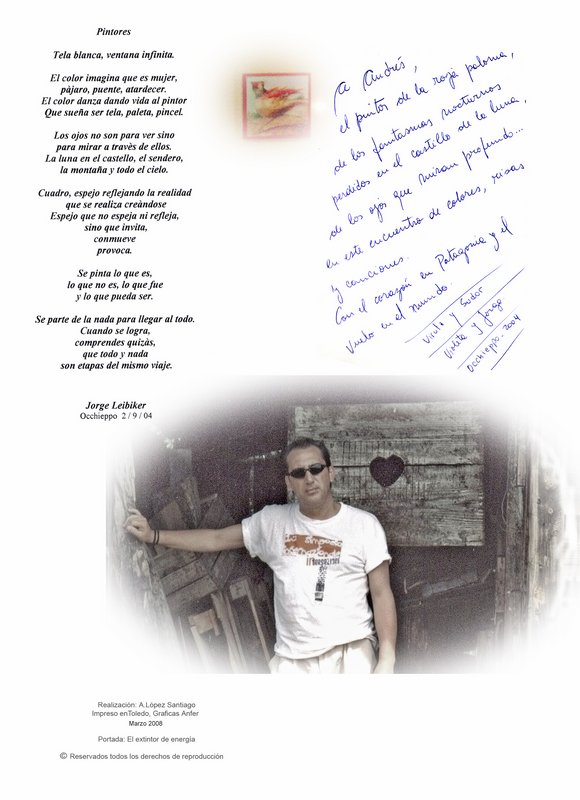 Pintores
Tela blanca, ventana infinita.
El color imagina que es mujer,
pàjaro, puente, atardecer.
El color danza dando vida al pintor
Que sueña ser tela, paleta, pincel.
Los ojos no son para ver sino
para mirar a travès de ellos.
La luna en el castello, el sendero,
la montaña y todo el cielo.
Cuadro, espejo reflejando la realidad
que se realiza creàndose
Espejo que no espeja ni refleja,
sino que invita,
conmueve
provoca.
Se pinta lo que es,
lo que no es, lo que fue
y lo que pueda ser.
Se parte de la nada para llegar al todo.
Cuando se logra,
comprendes quizàs,
que todo y nada
son etapas del mismo viaje.
Jorge Leibiker
Occhieppo 2 / 9 / 04
A Andrés,
el pintor de la roja paloma,
de los fantasmas nocturnos
perdidos en el castillo de la luna,
de los ojos que miran profundo...
en este encuentro de colores, risas
y canciones.
Con el corazón en Patagonia y el
vuelo en el mundo.
y
Violita y Jorge
Occhieppo. 2004
Realización: A.López Santiago
Impreso enToledo, Graficas Anfer
Marzo 2008
Portada: El extintor de energía
© Reservados todos los derechos de reproducción